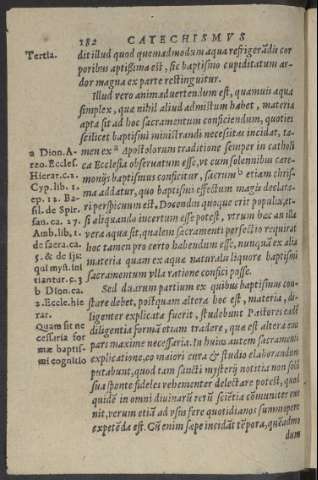 182 CATECHISMVS
Tertia.
dit illud quod quemadmodum aqua refrigerādis cor
poribus aptißima est, sic baptismo cupiditatum ar-
dor magna ex parte restinguitur.
Illud vero animaduertendum est, quamuis aqua
simplex, quæ nihil aliud admistum habet, materia
apta sit ad hoc sacramentum conficiendum, quoties
scilicet baptismi ministrandi necesitas incidat, ta-
men ex a Apostolorum traditione semper in catholi
ca Ecclesia obseruatum esse, vt cum solennibus cære-
monijs baptismus conficitur, sacrum b etiam chris-
ma addatur, quo baptismi effectum magis declara-
ri perspicuum est, Docendus quoque erit populus, et-
si aliquando incertum esse potest, vtrum hec an illa
vera aqua sit, qualem sacramenti perfectio requirat
hoc tamen pro certo habendum esse, nunquā ex alia
materia quam ex aquæ naturali liquore baptismi
sacramentum vlla ratione confici posse.
a Dion. A-
reo. Eccles.
Hierar. c. 2.
Cyp. lib. 1.
ep. 12. Ba-
sil. de Spir.
san. ca. 27.
Amb. lib. 1.
de sacra. ca.
5. & de ijs
qui myst. ini
tiantur. c. 3
b Dion. ca.
2. Eccle. hie
rar.
Sed duarum partium ex quibus baptismus con-
stare debet, postquam altera hoc est, materia, di-
ligenter explicata fuerit, studebunt Pastores eadē
diligentia formā etiam tradere, quæ est altera eius
pars maxime necessaria. In huius autem sacramenti
explicatione, eo maiori cura & studio elaborandum
putabunt, quod tam sancti mysterij notitia non solū
sua sponte fideles vehementer delectare potest, quod
quidē in omni diuinarū rerū sciētia communiter eue
nit, verum etiā ad vsus fere quotidianos summopere
expetēda est. Cū enim sæpe incidāt tēpora, quēadmo
Quam sit ne
cessaria for
mæ baptis-
mi cognitio
dum